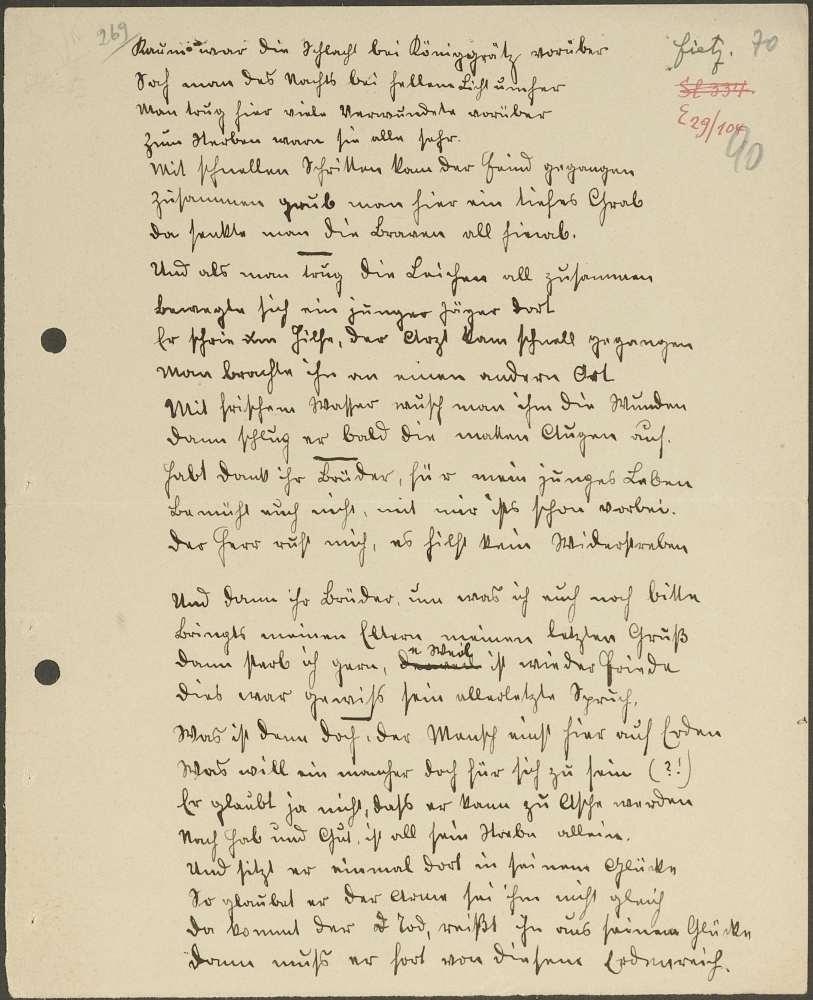 269
Fietz. 70
Kaum war die Schlacht bei Königgrätz vorüber
St 334
Sah man des Nachts bei hellem Licht umher
E 29/104
Man trug hier viele Verwundete vorüber
90
Zum Sterben warn sie alle sehr.
Mit schnellen Schritten kam der Feind gegangen
Zusammen grub man hier ein tiefes Grab
Da senkte man die Braven all hinab.
Und als man trug die Leichen all zusammen
Bewegte sich ein junger Jäger dort
Er schrie um Hilfe, der Arzt kam schnell gegangen
Man brachte ihn an einen andern Ort
Mit frischem Wasser wusch man ihm die Wunden
Dann schlug er bald die matten Augen auf.
Habt Dank ihr Brüder, für mein junges Leben
Bemüht euch nicht, mit mir ists schon vorbei.
Der Herr ruft mich, es hilft kein Widerstreben
Und dann ihr Brüder, um was ich euch noch bitte
Bringts meinen Eltern meinen letzten Gruß
Dann sterb ich gern, ist wieder Friede
Dies war gewiss sein allerletzte Spruch.
Was ist denn doch, der Mensch einst hier auf Erden
Was will ein mancher doch für sich zu sein (?!)
Er glaubt ja nicht, dass er kann zu Asche werden
Nach Hab und Gut, ist all sein Strebn allein.
Und sitzt er einmal dort in seinem Glücke
So glaubet er der Arme sei ihm nicht gleich
Da kommt der Tod, reißt ihn aus seinem Glücke
Dann muss er fort von diesem Erdenreich.